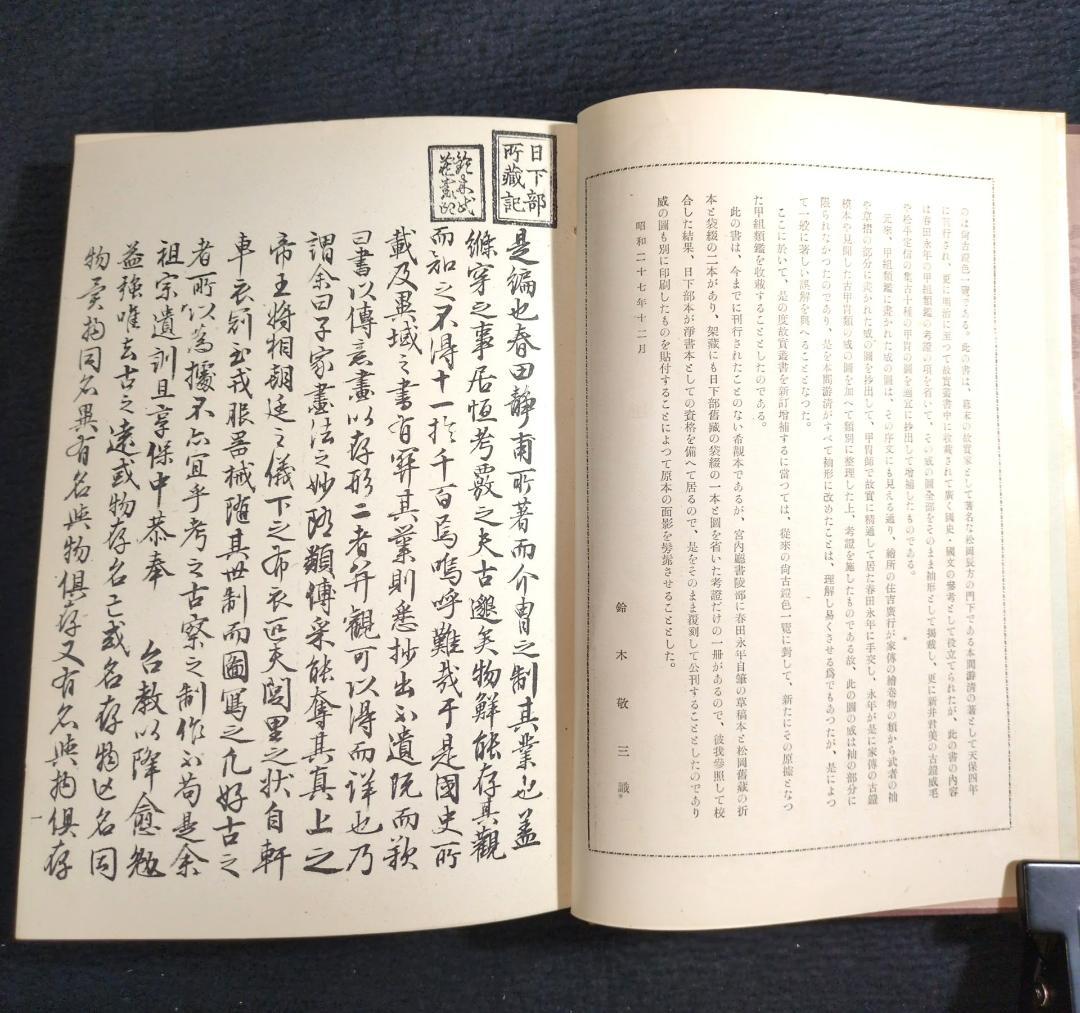 のは尙古鎧色一覽である。此の書は、幕末の故實家として著名な松岡辰方の門下である本間游淸の著として天保四年
に刊行され、更に明治に至つて故實叢書中に收載されて廣く國史・國文の參考として役立てられたが、此の書の內容
は春田永年の甲組類鑑の考證の項を省いて、その威の圖全部をそのまま袖形として揭載し、更に新井君美の古鎧威毛
や松平定信の集古十種の甲冑の圖を適宜に抄出して增補したものである。
元來、甲組類鑑に畫かれた威の圖は、その序文にも見える通り、繪所の住吉廣行が家傳の繪卷物の類から武者の袖
や草摺の部分に畫かれた威の圖を抄出して、甲冑師で故實に精通して居た春田永年に手交し、永年が是に家傳の古鎧
模本や見聞した古甲冑類の威の圖を加へて類別に整理した上、考證を施したものである故、此の圖の威は袖の部分に
限られなかつたのであり、是を本間游淸がすべて袖形に改めたことは、理解し易くさせる爲でもあつたが、是によつ
て一般に著しい誤解を與へることとなつた。
ここに於いて、是の度故實叢書を新訂增補するに當つては、從來の尙古鎧色一覽に對して、新たにその原據となつ
た甲組類鑑を收載することとしたのである。
此の書は、今までに刊行されたことのない希覯本であるが、宮內廳書陵部に春田永年自筆の草稿本と松岡舊藏の折
本と袋綴の二本があり、架藏にも日下部舊藏の袋綴の一本と圖を省いた考證だけの一冊があるので、彼我參照して校
合した結果、日下部本が淨書本としての資格を備へて居るので、是をそのまま覆刻して公刊することとしたのであり
威の圖も別に印刷したものを貼付することによつて原本の面影を髣髴させることとした。
昭和二十七年十二月
鈴木敬三識
日下部
所藏記
是編也春田靜甫所著而介冑之制其業也蓋
絛穿之事居恒考覈之夫古邈矣物鮮能存其觀
而知之不得十一於千百焉嗚呼難哉于是國史所
載及異域之書有穽其業則悉抄出不遺既而歎
曰書以傳意畫以存形二者并觀可以得而詳也乃
謂余曰子家畫法之妙隨類傳采能奪其真上之
帝王將相朝廷之儀下之布衣匹夫閭里之狀自軒
車衣劍至戎服器械随其世制而圖寫之凡好古之
者所以為據不亦宜乎考之古察之制作不苟是余
祖宗遺訓且享保中恭奉　台教以降愈勉
益強唯去古之遠或物存名亡或名存物亡名同
物異物同名異有名與物俱存又有名與物俱存